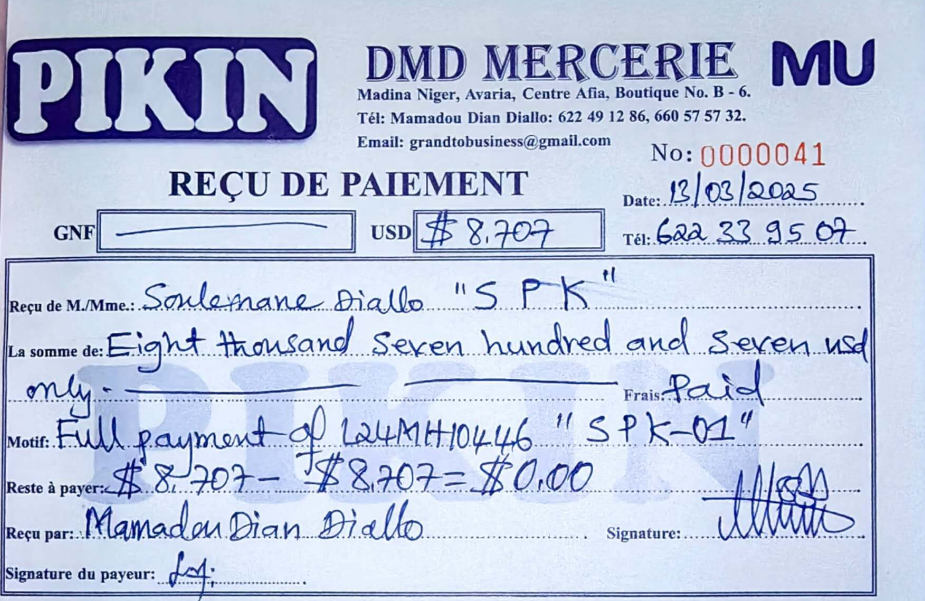 PIKIN
DMD MERCERIE MU
Madina Niger, Avaria, Centre Afia, Boutique No. B - 6.
Tél: Mamadou Dian Diallo: 622 49 12 86, 660 57 57 32.
Email: grandtobusiness@gmail.com
No: 0000041
REÇU DE PAIEMENT
Date: 13/03/2025
GNF USD $ 8.707
Tél: 622 33 95 07
Reçu de M./Mme.: Soulemane Diallo "S P K"
La somme de: Eight thousand Seven hundred and Seven usd
only. Frais: Paid
Motif: Full payment of L24MH10446 "S P K-01"
Reste à payer: $ 8.707 - $8.707 = $0.00
Reçu par: Mamadou Dian Diallo Signature:
Signature du payeur:
PIKIN